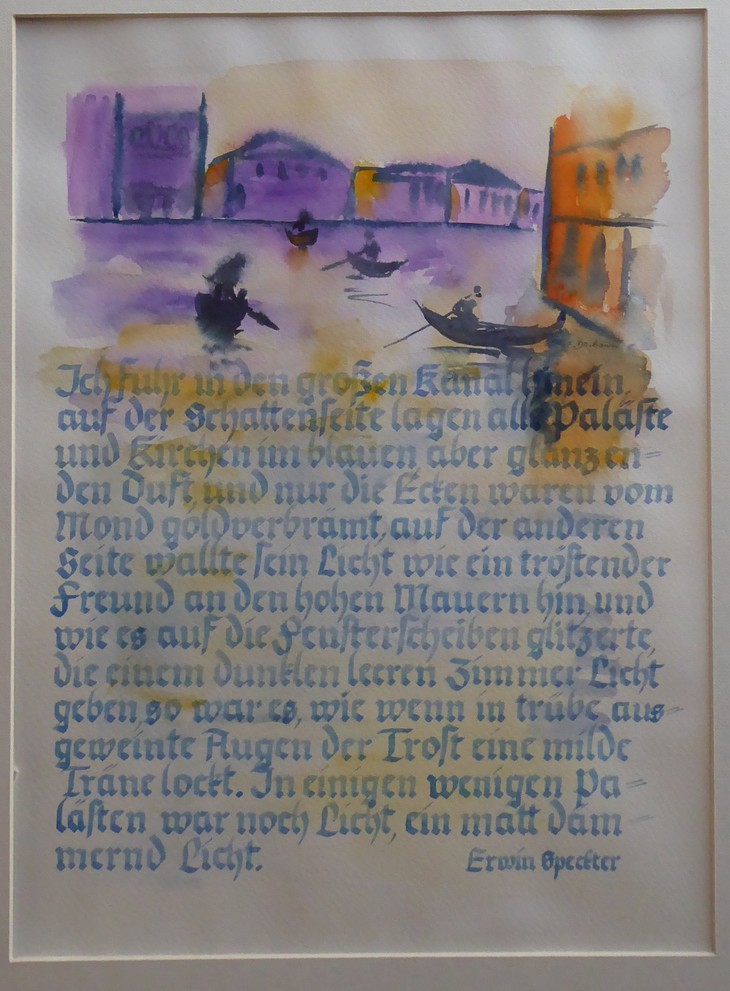 Ich fuhr in den großen Kanal hinein,
auf der Schattenseite lagen alle Paläste
und Kirchen im blauen aber glänzen=
den Duft und nur die Ecken waren vom
Mond goldverbrämt, auf der anderen
Seite wallte sein Licht wie ein tröstender
Freund an den hohen Mauern hin, und
wie es auf die Fensterscheiben glitzerte,
die einem dunklen leeren Zimmer Licht
geben, so war es, wie wenn in trübe aus=
geweinte Augen der Trost eine milde
Träne lockt. In einigen wenigen Pa=
lästen war noch Licht, ein matt däm=
mernd Licht.
Erwin Speckter